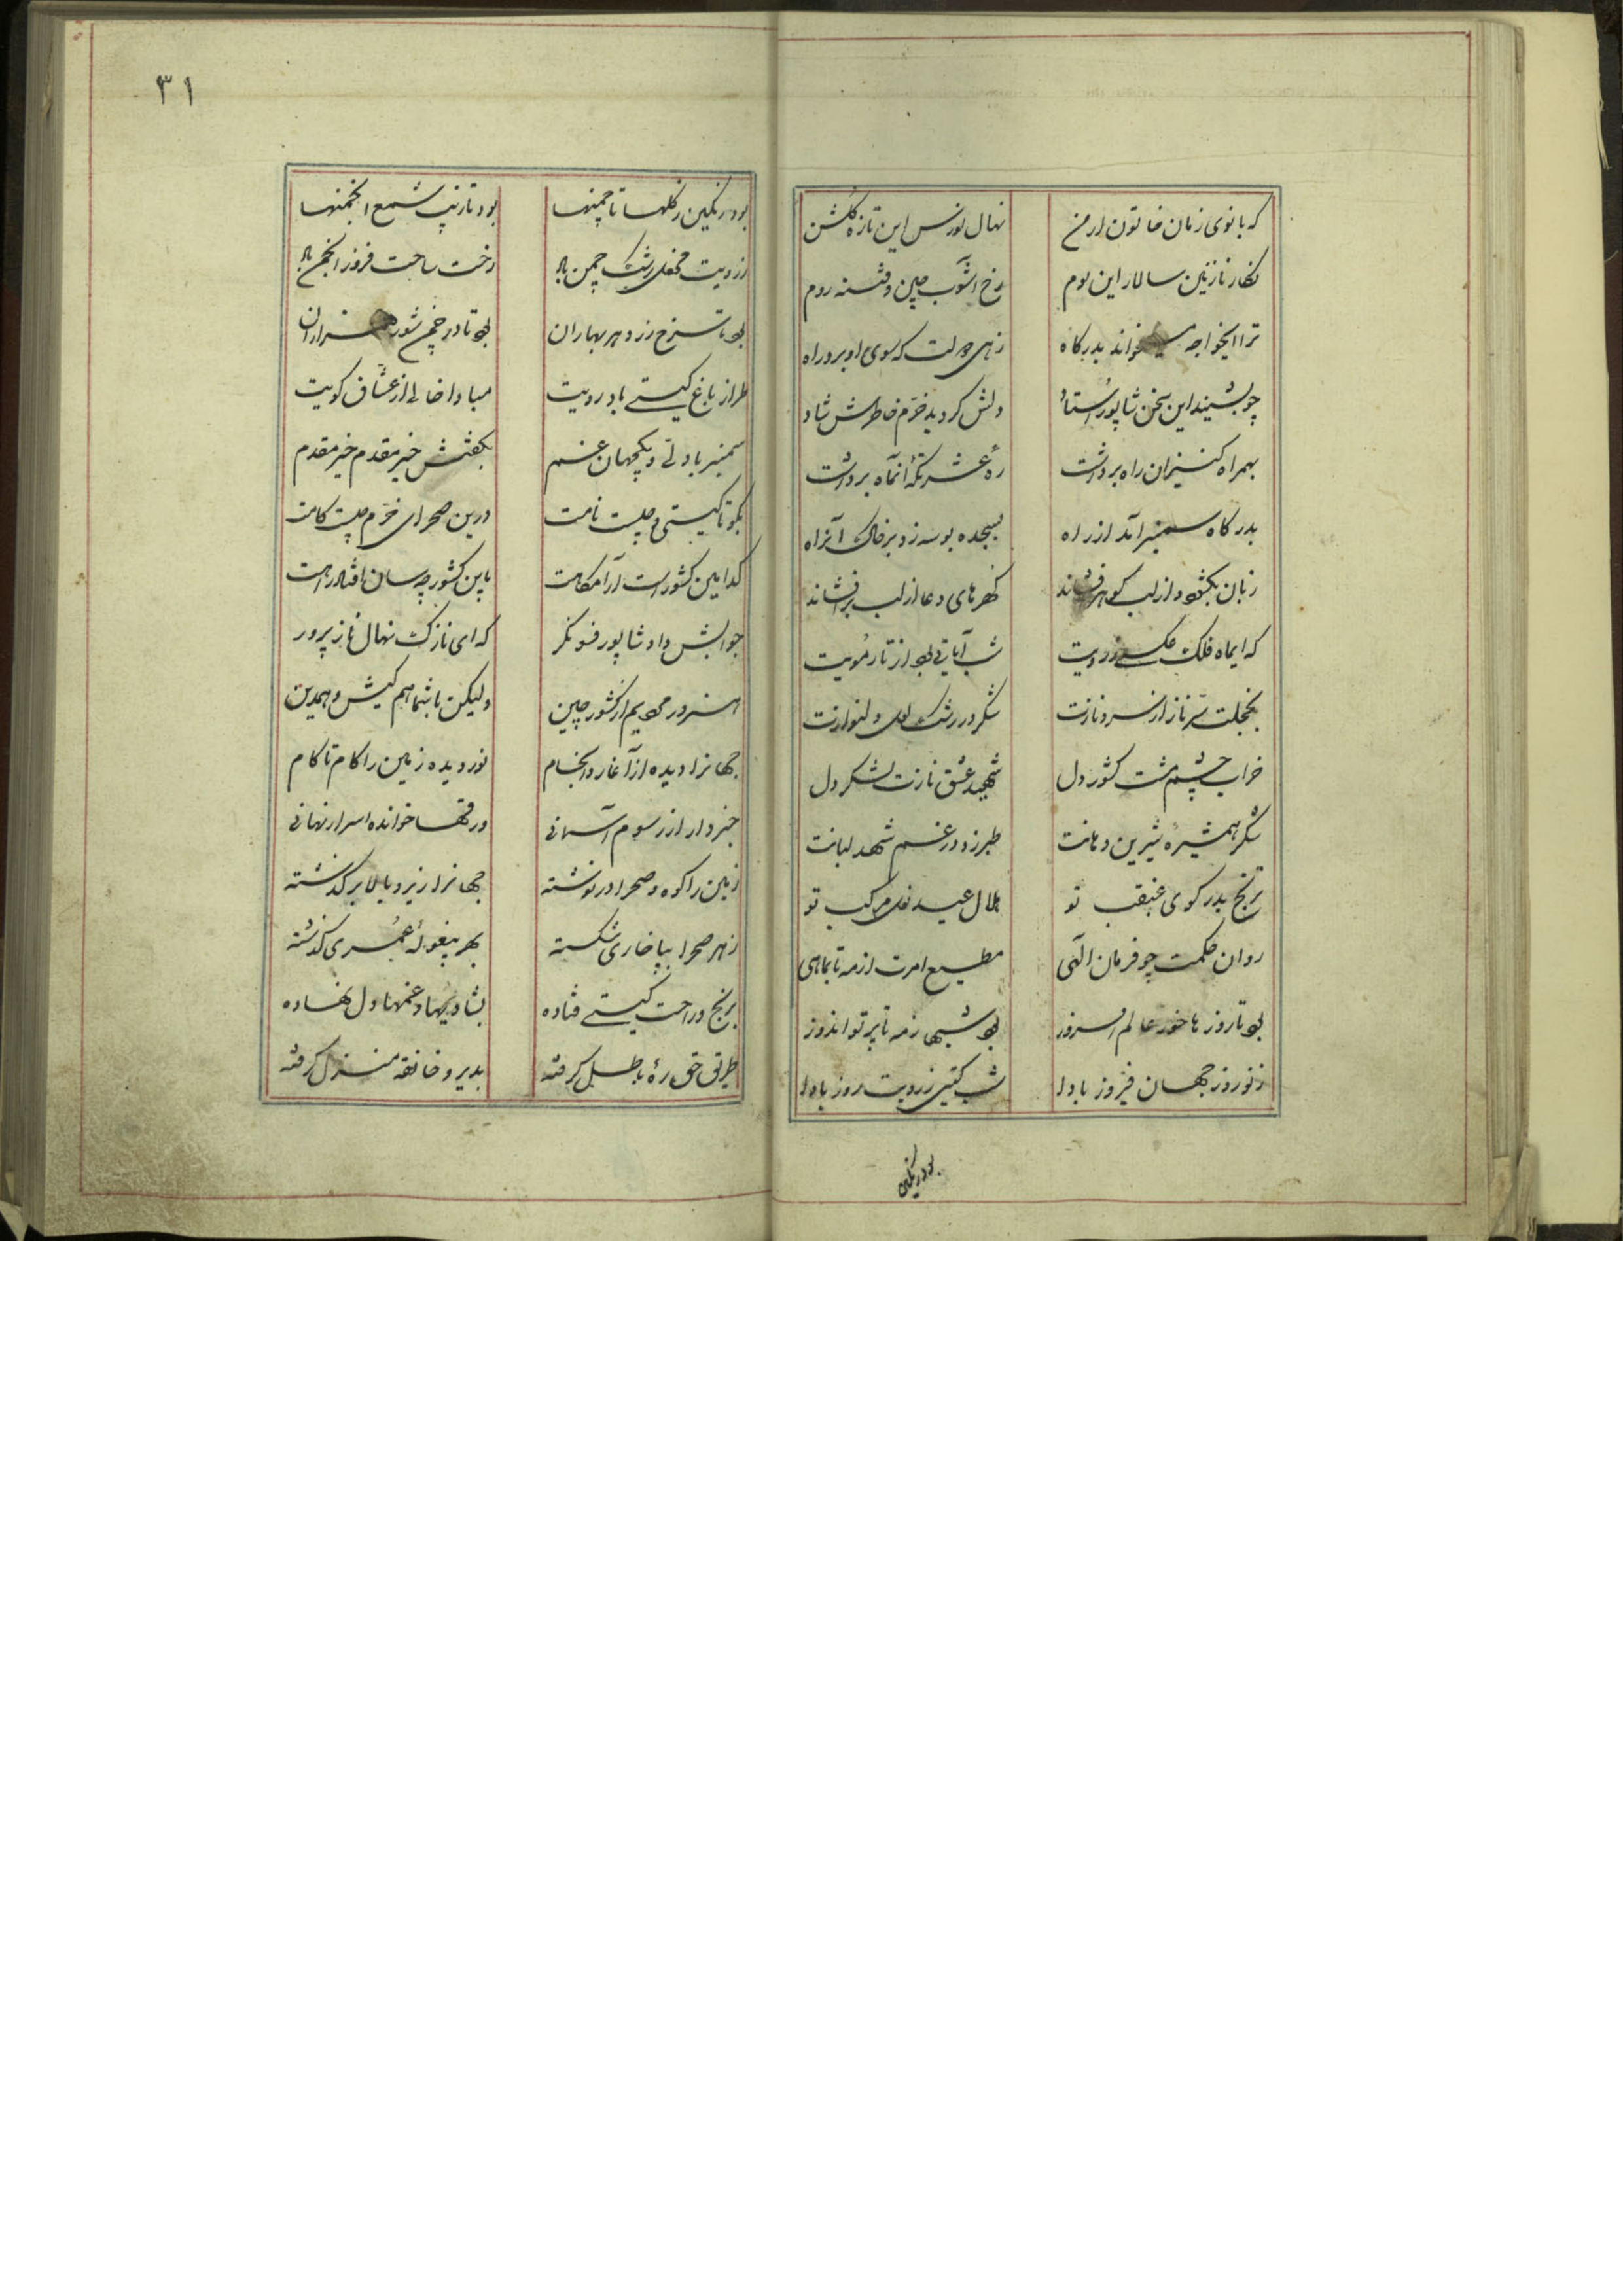 که بانوی زمان خاتون ارمن نهال نورس این تازه گلشن
نکار نازنین سالار این بوم رخ آشوب چین و فتنه روم
ترا ایخواجه میخواند بدرکاه زهی دولت که سوی او برد راه
چو بشنید این سخن شاپور استاد دلش کردید خرم خاطرش شاد
بهمراه کنیزان راه برداشت ره عشرتگه آنماه برداشت
بدرکاه سمنبر آمد از راه بسجده بوسه زد بر خاک آنراه
زبان بکشود و از لب کوهر فشاند کهرهای دعا از لب بر افشاند
که ایماه فلک عکسی ز رویت شب آیاتی بود از تار مویت
بخجلت سرو ناز از سرو نازت شکر در رشک لعل دلنوازت
خراب چشم مستت کشور دل شهید عشق نازت لشکر دل
شکر همشیره شیرین دهانت طبرزد در غم شهد لبانت
ترنج بدر کوی غبغب تو هلال عید نعل مرکب تو
روان حکمت چو فرمان الهی مطیع امرت از مه تا بماهی
بود تا روزها خور عالم افروز بود شبها ز مه تا پرتو اندوز
ز نوروز جهان فیروز بادا شب کیتی ز رویت روز بادا
بود رنکین
٣١
بود رنکین ز کلها تا چمنها بود تا زیب شمع انجمنها
ز رویت محفل رشک چمن باد رخت ساحت فروز انجمن باد
بود تا سرخ زرد هر بهاران بود تا در چمن شور هزاران
طراز باغ کیتی باد رویت مبادا خالی از عشاق کویت
سمنبر با دلی و یکجهان غم بکفتش خیر مقدم خیر مقدم
بکو تا کیستی و چیست نامت درین صحرای خرم چیست کامت
کدامین کشور است آرامکاهت باین کشور چه سان افتاد راهت
جوابش داد شاپور فسونکر که ای نازک نهال ناز پرور
هنرور مردیم از کشور چین ولیکن با شما هم کیش و همدین
جهانرا دیده از آغاز و انجام نوردیده زمین را کام تا کام
خبردار از رسوم آسمانی ورقها خوانده اسرار نهانی
زمین را کوه و صحرا در نوشته جهانرا زیر و بالا بر کذشته
ز هر صحرا بپا خاری شکسته بهر پیغوله عمری کذشته
برنج و راحت کیتی فتاده بشادیها و غمها دل نهاده
طریق حق ره باطل کرفته بدیر و خانقه منزل کرفته